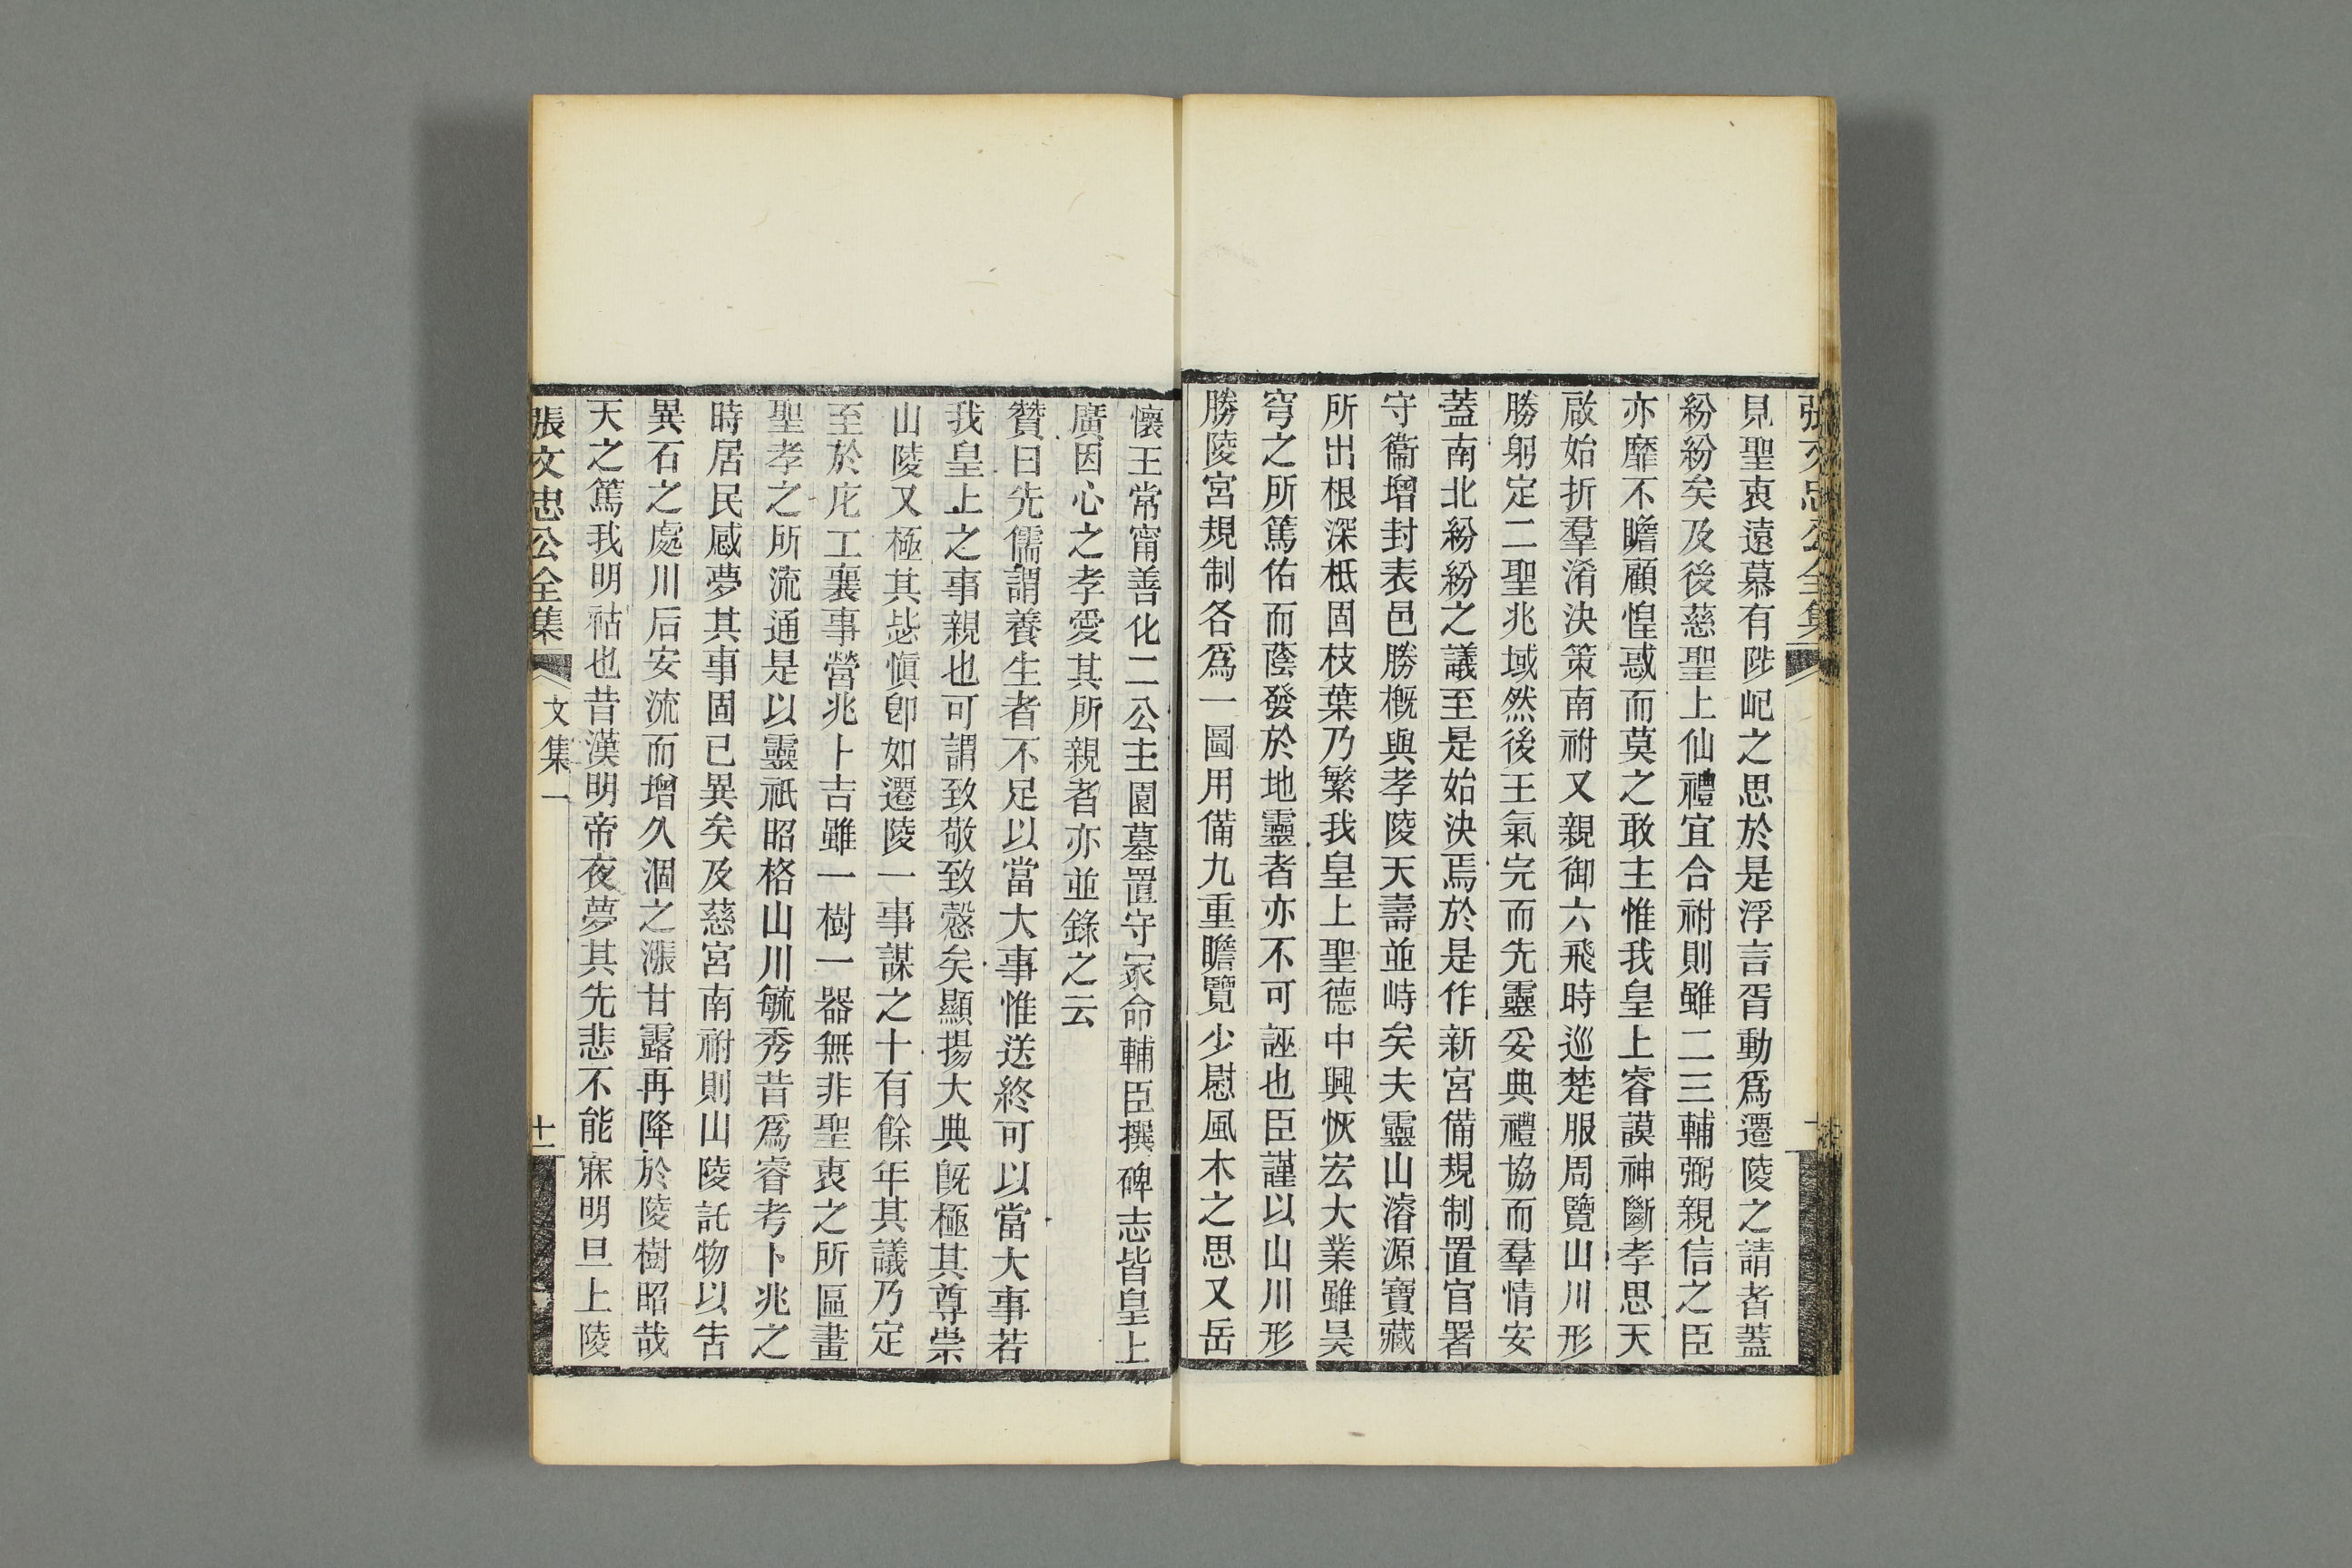 張文忠公全集
見聖衷遠慕有陟屺之思於是浮言胥動爲遷陵之請者蓋
紛紛矣及後慈聖上仙禮宜合祔則雖二三輔弼親信之臣
亦靡不瞻顧惶惑而莫之敢主惟我皇上睿謨神斷孝思天
啟始折羣淆決策南祔又親御六飛時巡楚服周覽山川形
勝躬定二聖兆域然後王氣完而先靈妥典禮協而羣情安
蓋南北紛紛之議至是始決焉於是作新宮備規制置官署
守衞增封表邑勝槪與孝陵天壽並峙矣夫靈山濬源寶藏
所出根深柢固枝葉乃繁我皇上聖德中興恢宏大業雖昊
穹之所篤佑而蔭發於地靈者亦不可誣也臣謹以山川形
勝陵宮規制各爲一圖用備九重瞻覽少慰風木之思又岳
懷王常甯善化二公主園墓置守冢命輔臣撰碑志皆皇上
廣因心之孝愛其所親者亦並錄之云
贊曰先儒謂養生者不足以當大事惟送終可以當大事若
我皇上之事親也可謂致敬致慤矣顯揚大典旣極其尊崇
山陵又極其毖愼卽如遷陵一事謀之十有餘年其議乃定
至於庀工襄事營兆卜吉雖一樹一器無非聖衷之所區畫
聖孝之所流通是以靈祇昭格山川毓秀昔爲睿考卜兆之
時居民感夢其事固已異矣及慈宮南祔則山陵託物以告
異石之處川后安流而增久涸之漲甘露再降於陵樹昭哉
天之篤我明祜也昔漢明帝夜夢其先悲不能寐明旦上陵
張文忠公全集
文集一
十一